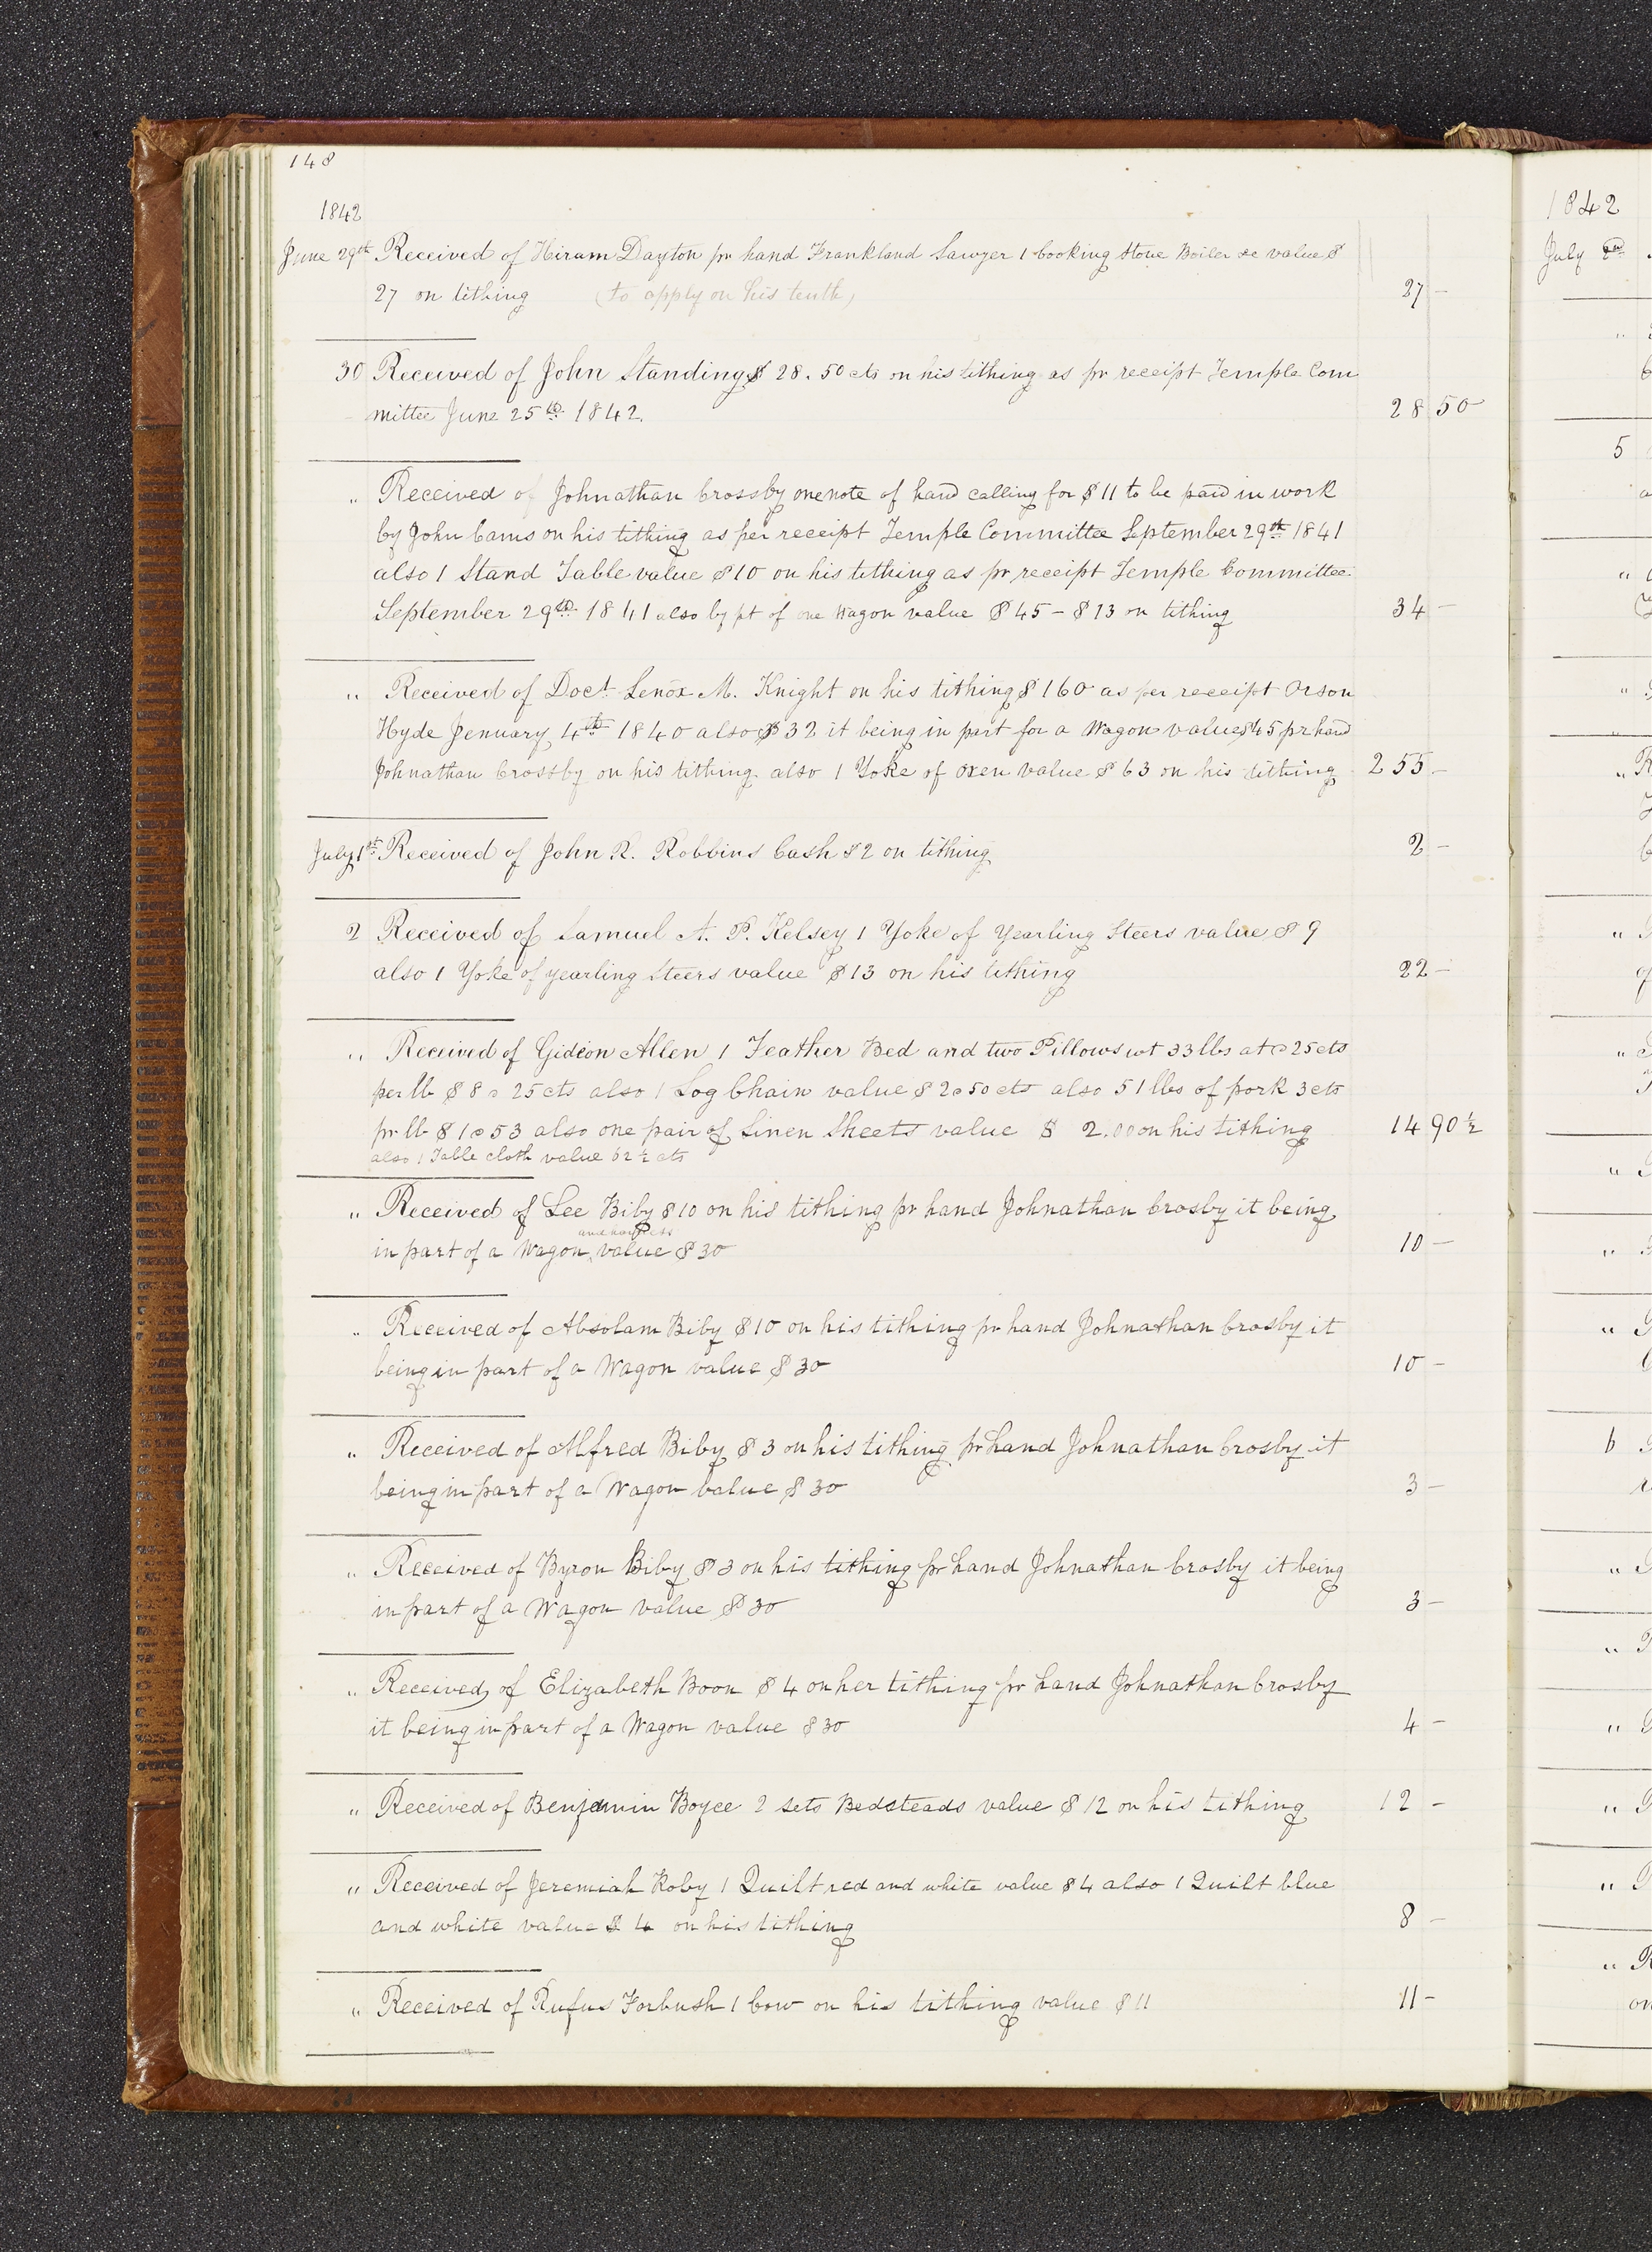 148
1842
June 29th Received of Hiram Dayton pr hand Frankland Sawyer 1 Cooking Stove Boiler &c value $
27 on tithing (to apply on his tenth) 27 –
30 Received of John Standing $ 28.50 cts on his tithing as pr receipt Temple Com
mittee June 25th 1842. 28 50
" Received of Johnathan Crossby one note of hand calling for $11 to be paid in work
by John Cams on his tithing as per receipt Temple Committee September 29th 1841
also 1 Stand Table value $10 on his tithing as pr receipt Temple Committee
September 29th 1841 also by pt of one Wagon value $45 – $13 on tithing 34 –
" Received of Doct. Lenox M. Knight on his tithing $160 as per receipt Orson
Hyde Jenuary 4th 1840 also $32 it being in part for a Wagon value $45 pr hand
Johnathan Crossby on his tithing also 1 Yoke of oxen value $63 on his tithing 255 –
July 1st Received of John R. Robbins Cash $2 on tithing 2 –
2 Received of Samuel A. P. Kelsey 1 Yoke of Yearling Steers value $9
also 1 Yoke of yearling Steers value $13 on his tithing 22 –
" Received of Gideon Allen 1 Feather Bed and two Pillows wt 33 lbs at 25 cts
per lb $8 25 cts also 1 Log Chain value $2 50 cts also 51 lbs of pork 3 cts
pr lb $1 53 also one pair of Linen Sheets value $ 2.00 on his tithing 14 90 1/2
also 1 Table cloth value 62 1/2 cts
" Received of Lee Biby $10 on his tithing pr hand Johnathan Crosby it being
and harness
in part of a Wagon value $30 10 –
" Received of Absolam Biby $10 on his tithing pr hand Johnathan Crosby it
being in part of a Wagon value $30 10 –
" Received of Alfred Biby $3 on his tithing pr hand Johnathan Crosby it
being in part of a Wagon value $30 3 –
" Received of Byron Biby $3 on his tithing pr hand Johnathan Crosby it being
in part of a Wagon value $30 3 –
" Received of Elizabeth Boon $4 on her tithing pr hand Johnathan Crosby
it being in part of a Wagon value $30 4 –
" Received of Benjamin Boyce 2 sets Bedsteads value $12 on his tithing 12 –
" Received of Jeremiah Roby 1 Quilt red and white value $4 also 1 Quilt blue
and white value $4 on his tithing 8 –
" Received of Rufus Forbush 1 Cow on his tithing value $11 11 –
1842
July
5
"